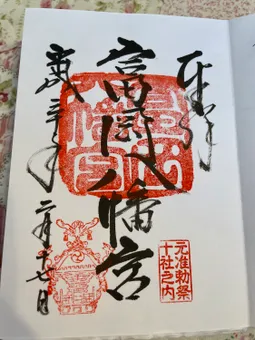 奉拝
元准勅祭
十社之内
富岡八幡宮
平成三十年
二月十七日